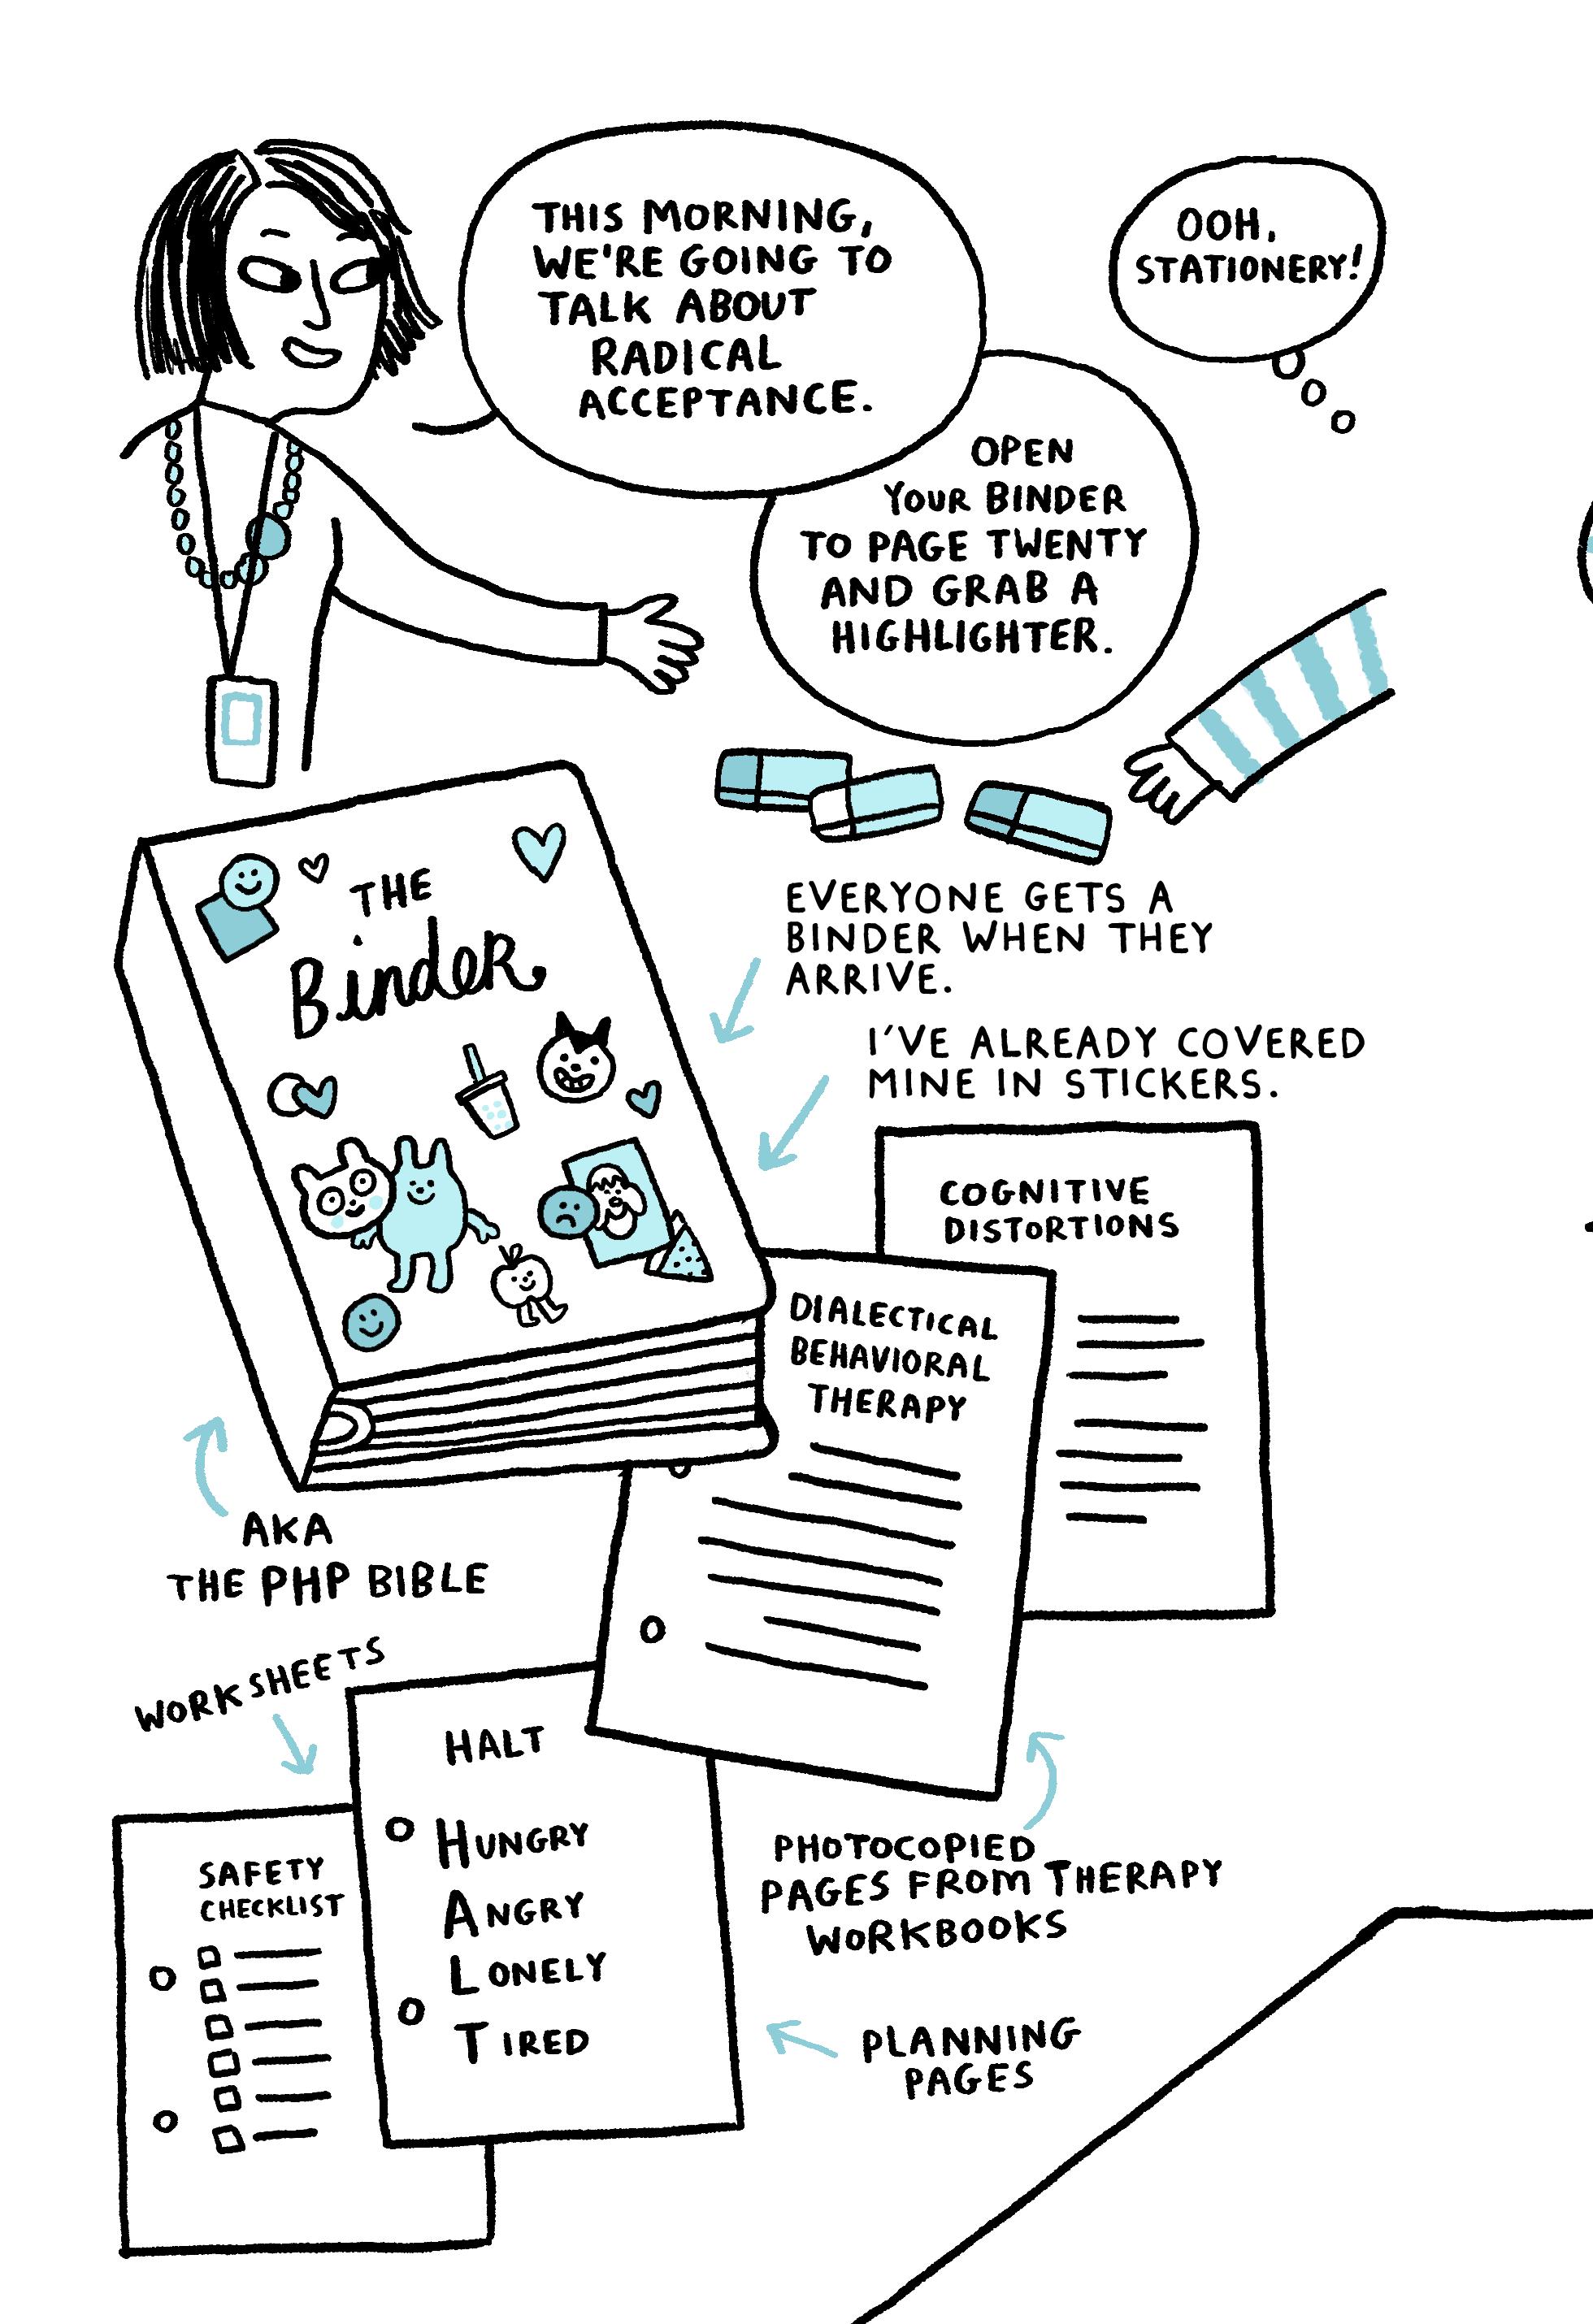 THIS MORNING,
WE'RE GOING TO
TALK ABOUT
RADICAL
ACCEPTANCE.
OPEN
YOUR BINDER
TO PAGE TWENTY
AND GRAB A
HIGHLIGHTER.
OOH,
STATIONERY!
THE
BindeR
EVERYONE GETS A
BINDER WHEN THEY
ARRIVE.
I'VE ALREADY COVERED
MINE IN STICKERS.
COGNITIVE
DISTORTIONS
DIALECTICAL
BEHAVIORAL
THERAPY
AKA
THE PHP BIBLE
WORKSHEETS
HALT
HUNGRY
ANGRY
LONELY
TIRED
SAFETY
CHECKLIST
PHOTOCOPIED
PAGES FROM THERAPY
WORKBOOKS
PLANNING
PAGES